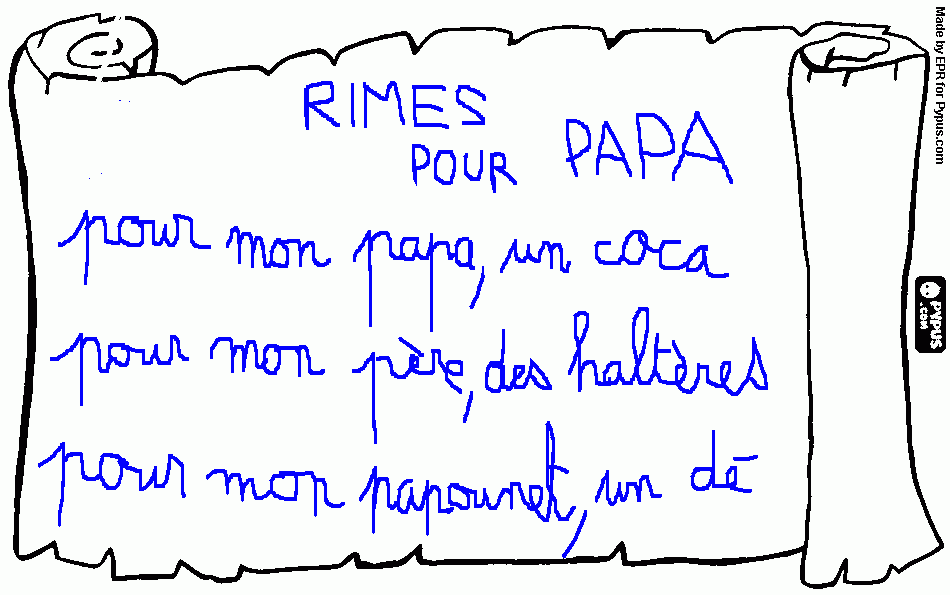 RIMES
POUR PAPA
pour mon papa, un coca
pour mon père, des haltères
pour mon papounet, un dé
Made by EPR for Pypus.com
PYPUS
.COM